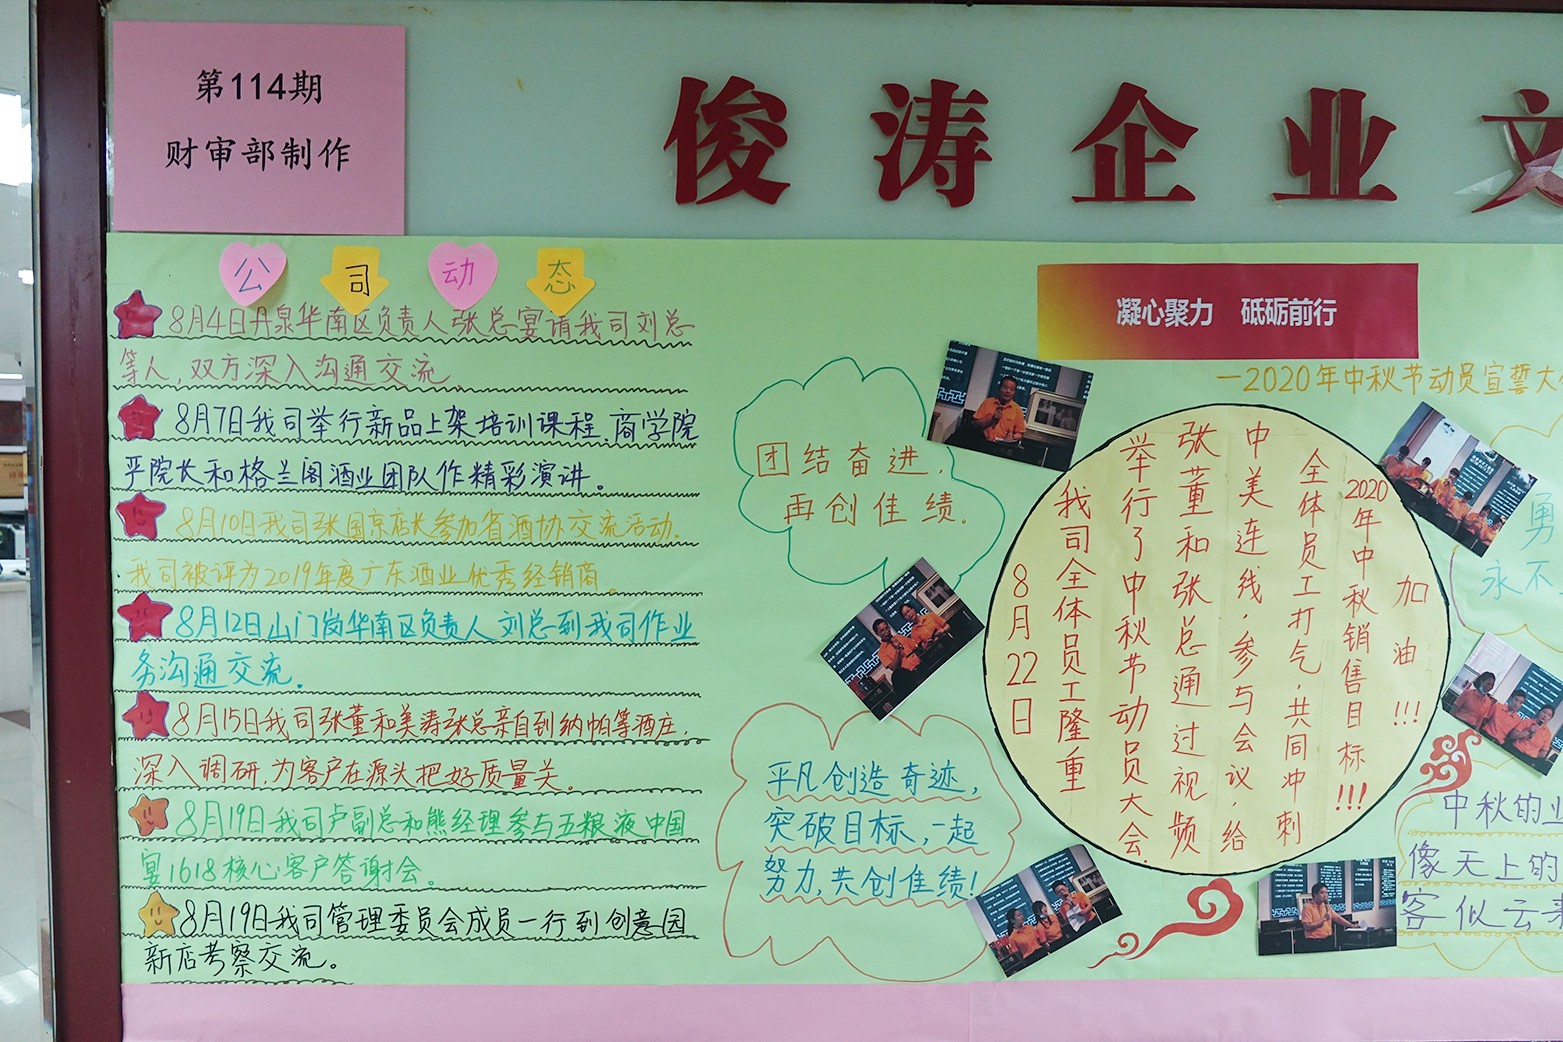 第114期
财审部制作
俊涛企业文
公司动态
8月4日丹泉华南区负责人张总宴请我司刘总
等人,双方深入沟通交流
8月7日我司举行新品上架培训课程,商学院
严院长和格兰阁酒业团队作精彩演讲。
8月10日我司张国京店长参加省酒协交流活动.
我司被评为2019年度广东酒业优秀经销商。
8月12日山门岗华南区负责人刘总到我司作业
务沟通交流.
8月15日我司张董和美涛张总亲自到纳帕等酒庄,
深入调研,为客户在源头把好质量关。
8月19日我司卢副总和熊经理参与五粮液中国
宴1618核心客户答谢会。
8月19日我司管理委员会成员一行到创意园
新店考察交流。
凝心聚力 砥砺前行
—2020年中秋节动员宣誓大
团结奋进,
再创佳绩.
8月22日
我司全体员工隆重
举行了中秋节动员大会.
张董和张总通过视频
中美连线,参与会议,给
全体员工打气,共同冲刺
2020年中秋销售目标!!!
加油!!!
平凡创造奇迹,
突破目标,一起
努力,共创佳绩!
勇
永不
中秋的业
像天上的
客似云来